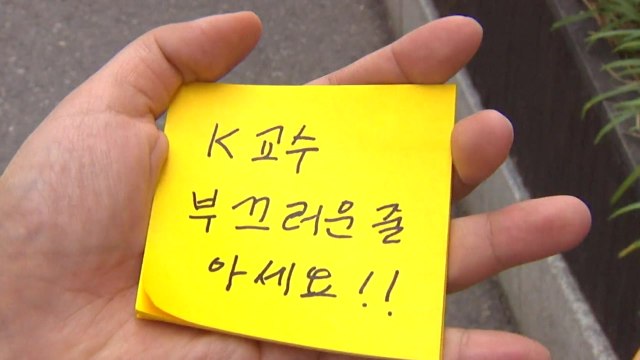 K 교수
부끄러운 줄
아세요!!